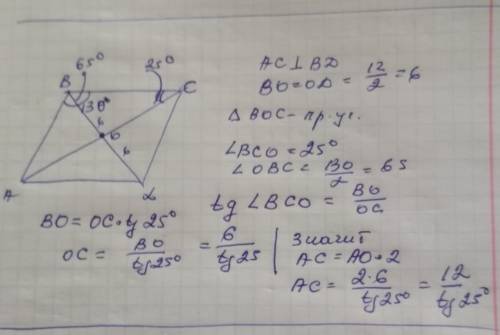 65° 25°
B C
130°
6
O
6
A D
AC ⊥ BD
BO = OD = 12/2 = 6
△ BOC - пр. уг.
∠BCO = 25°
∠OBC = 130/2 = 65
tg ∠BCO = BO/OC
BO = OC • tg 25°
OC = BO/tg25° = 6/tg25
Значит
AC = AO • 2
AC = 2•6/tg25° = 12/tg25°